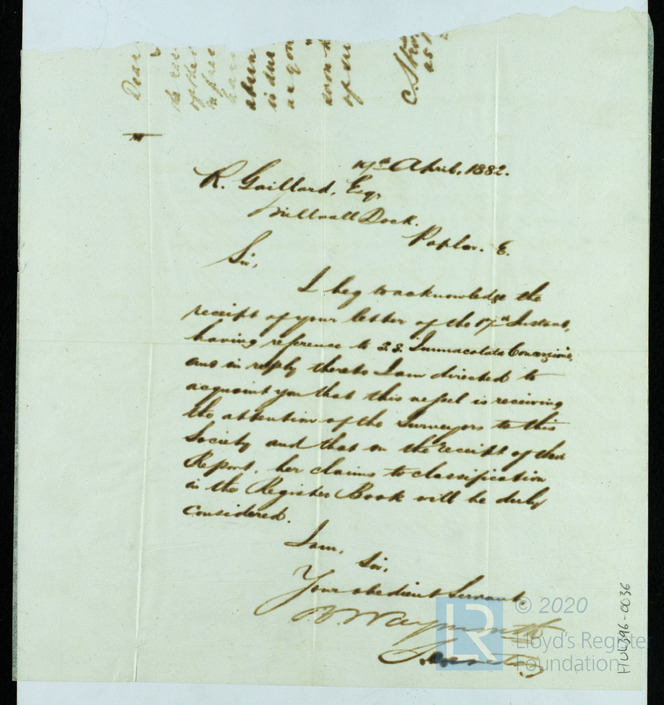 Dear
17th April, 1882.
R. Gaillard, Esq.
Millwall Dock.
Poplar. E.
Sir,
I beg to acknowledge the
receipt of your letter of the 17th Instant,
having reference to S.S. "Immacolata Concezione"
and in reply thereto I am directed to
acquaint you that this vessel is receiving
the attention of the Surveyors to this
Society and that on the receipt of their
Report, her claims to classification
in the Register Book will be duly
considered.
I am, Sir,
Your obedient Servant,
B Waymouth
Secretary
© 2020
LR
Lloyd's Register
Foundation
HUL396-0036